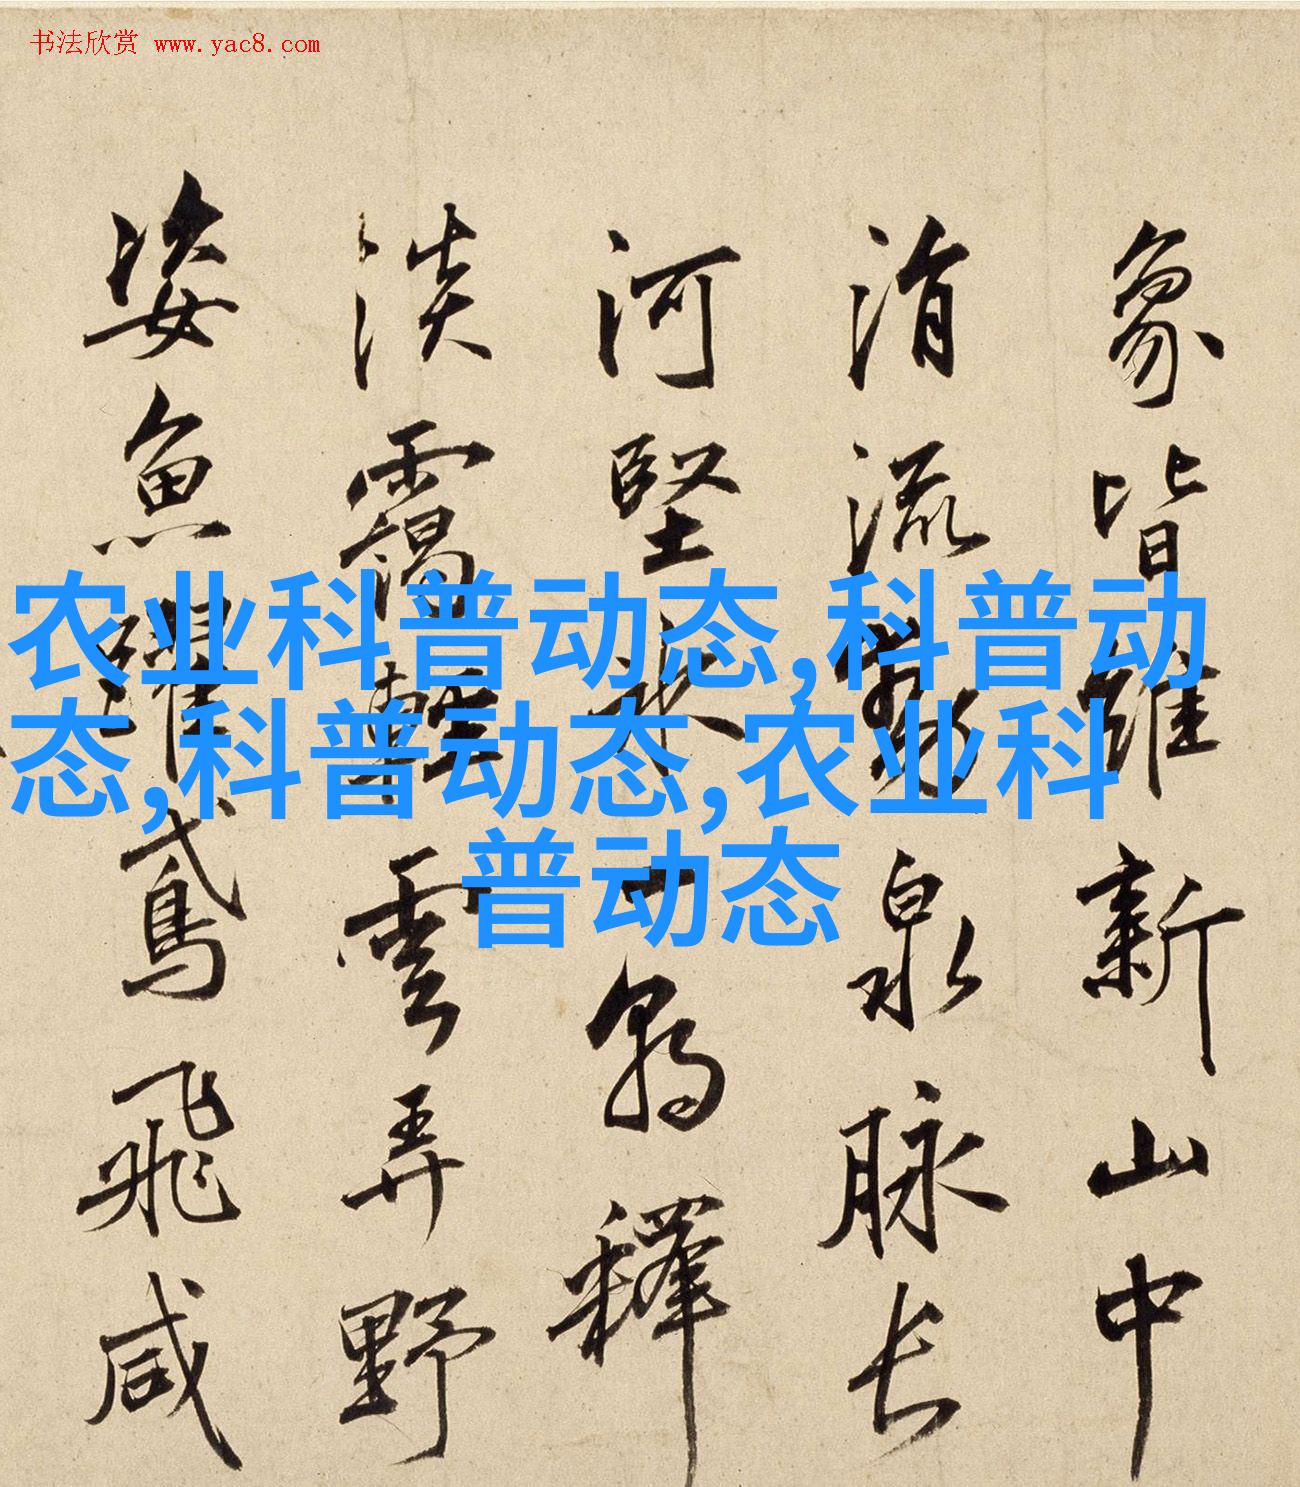 书法欣赏 www.yac8.com
农业科普动态,科普动
态,科普动态,农业科
普动态
象皆維新山中
消流數泉脉长
河堅冰一旦釋
淡靄輕雲弄野
姿魚躍鳶飛咸